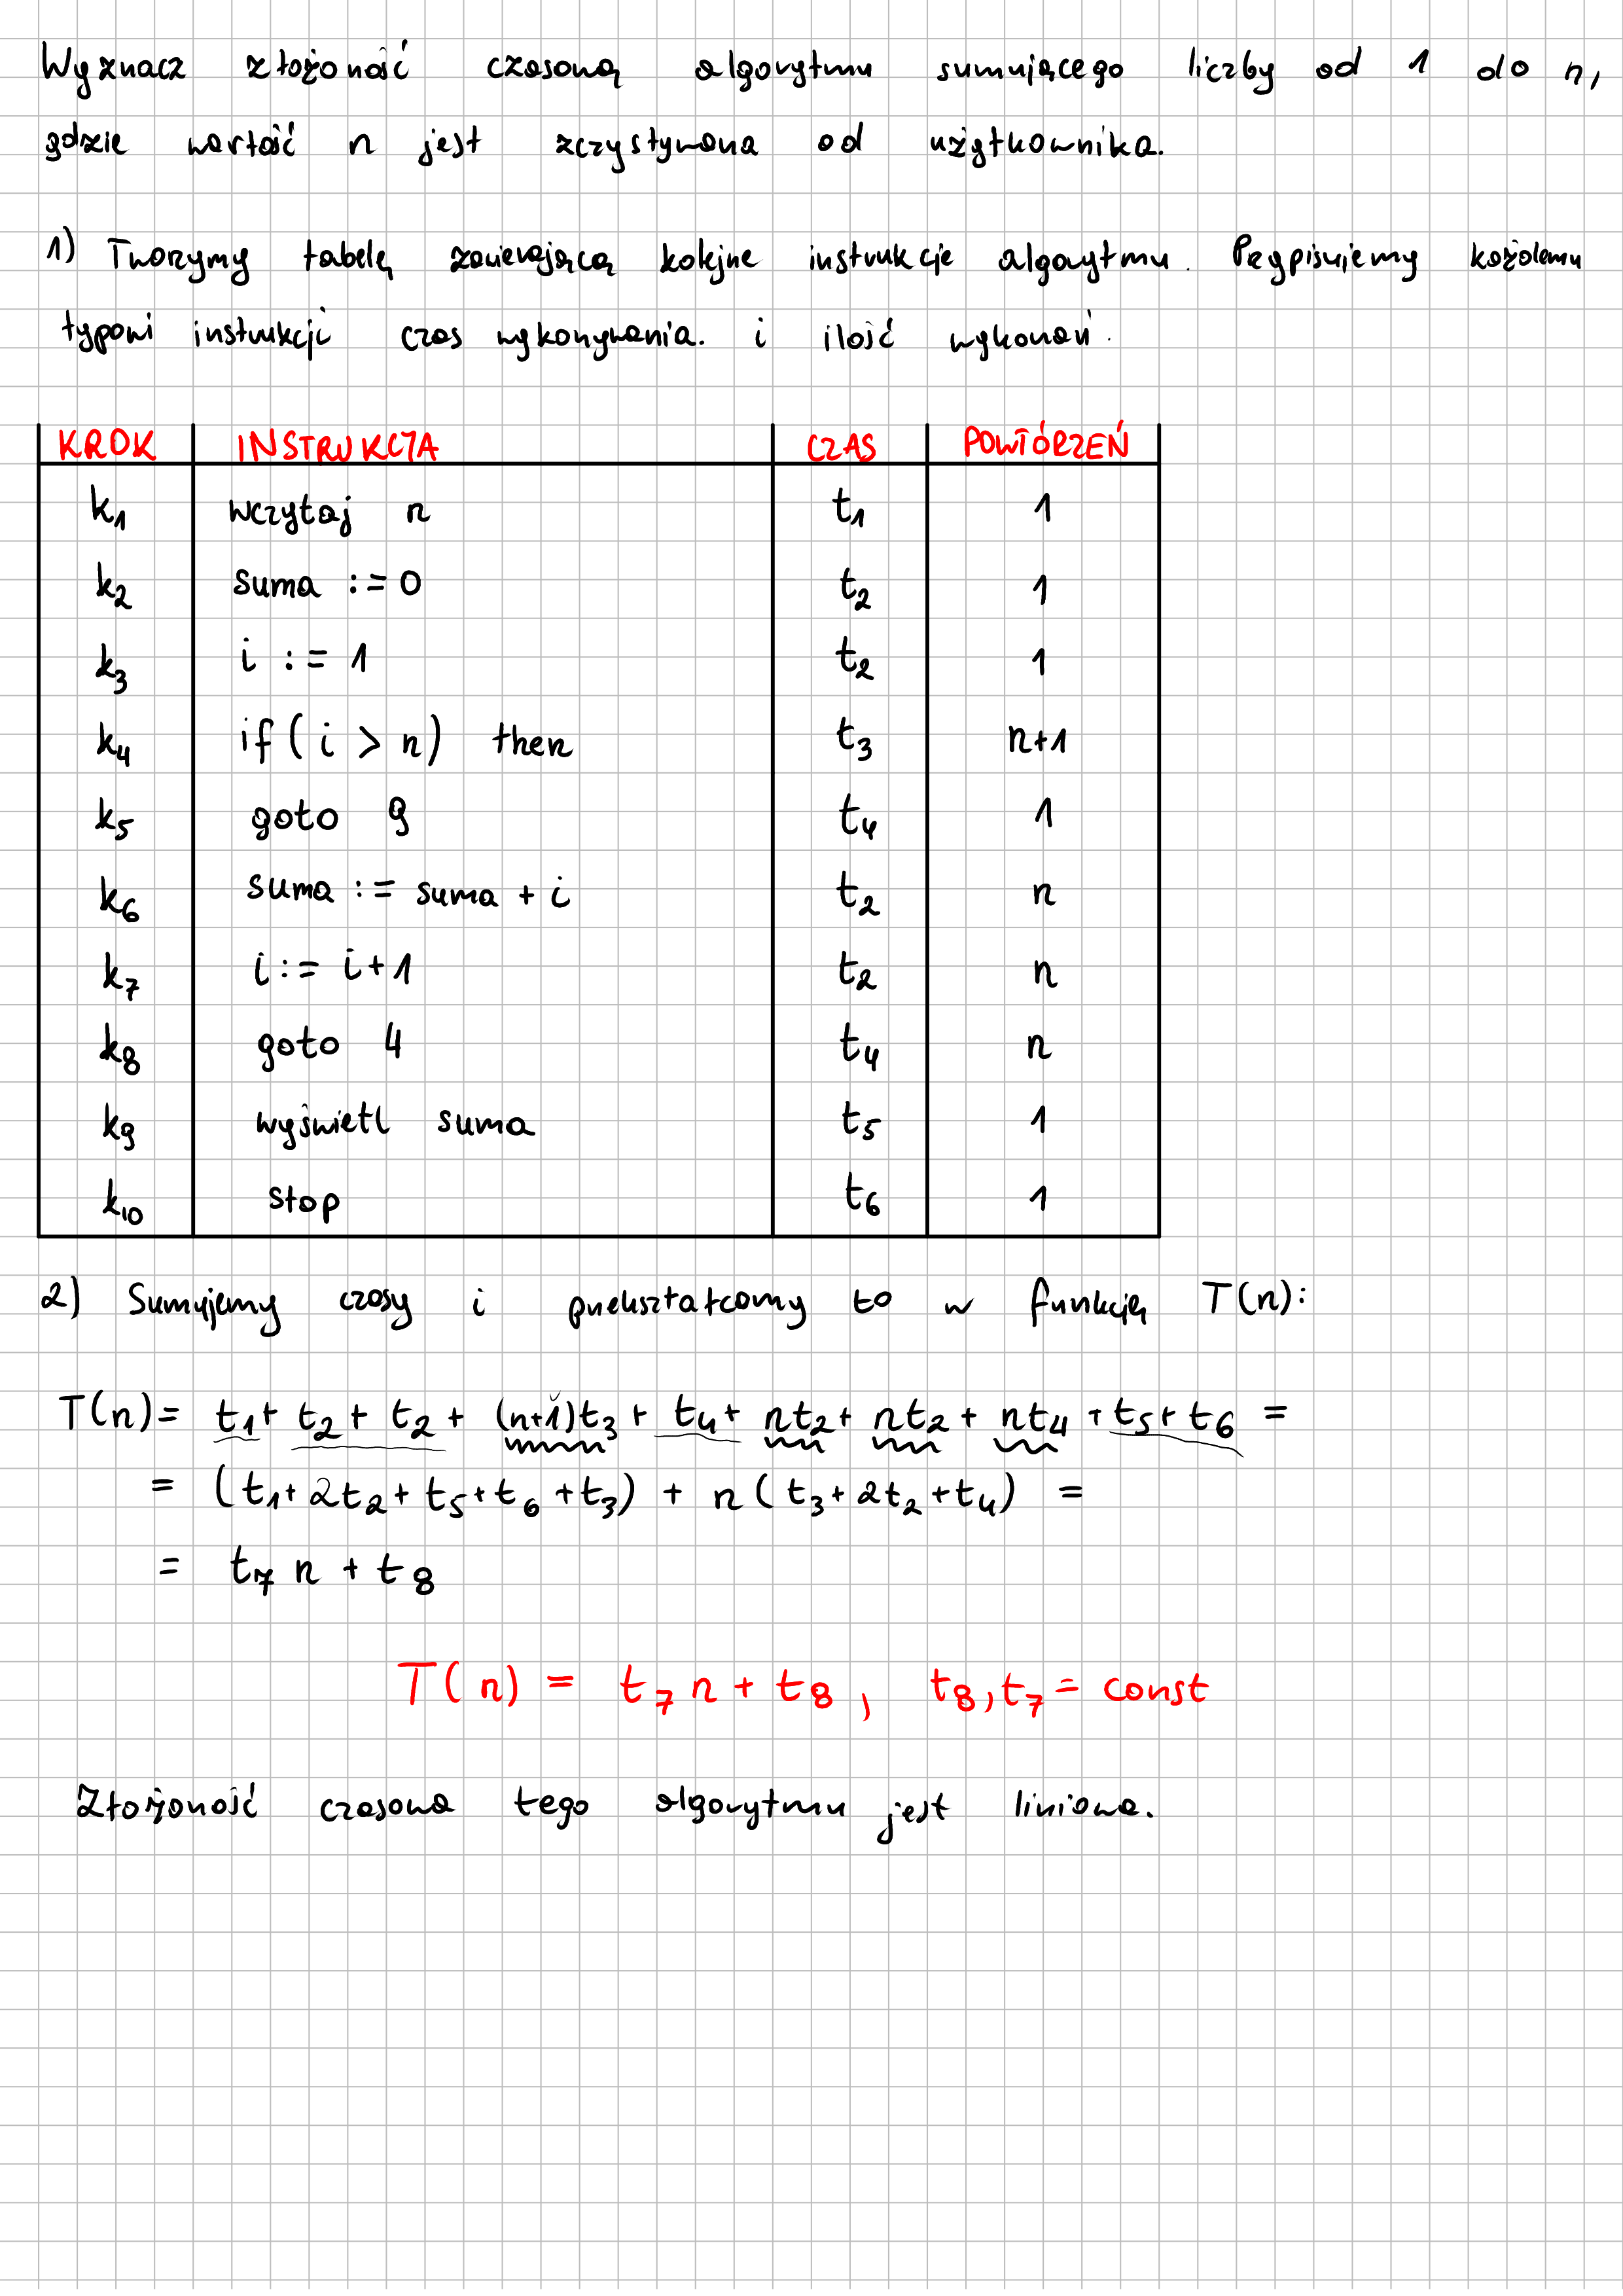 Wyznacz złożoność czasową algorytmu sumującego liczby od 1 do n,
gdzie wartość n jest zczystywana od użytkownika.
1) Tworzymy tabelę zawierającą kolejne instrukcje algorytmu. Przypisujemy każdemu
typowi instrukcji czas wykonywania. i ilość wykonań.
KROK INSTRUKCJA CZAS POWTÓRZEŃ
k1 wczytaj n t1 1
k2 suma := 0 t2 1
k3 i := 1 t2 1
k4 if (i > n) then t3 n+1
k5 goto 9 t4 1
k6 suma := suma + i t2 n
k7 i := i+1 t2 n
k8 goto 4 t4 n
k9 wyświetl suma t5 1
k10 stop t6 1
2) Sumujemy czasy i przekształcamy to w funkcję T(n):
T(n) = t1 + t2 + t2 + (n+1)t3 + t4 + nt2 + nt2 + nt4 + t5 + t6 =
= (t1 + 2t2 + t5 + t6 + t3) + n (t3 + 2t2 + t4) =
= t7 n + t8
T(n) = t7 n + t8, t8, t7 = const
Złożoność czasowa tego algorytmu jest liniowa.